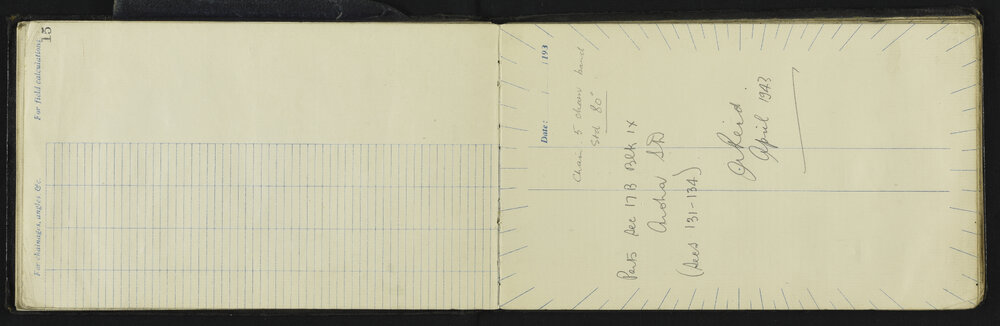 15
For field calculations.
For chainages, angles, &c.
Date: / / 193
Chain. 5 chain band
Std 80°
Parts Sec 17B Blk IX
Aroha SD
(Secs 131-134)
Reid
April 1943